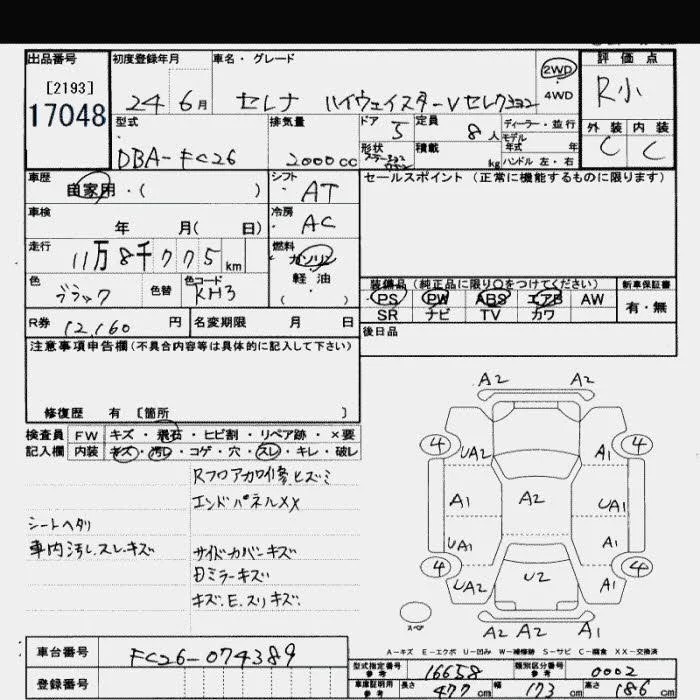 出品番号
[2193]
17048
初度登録年月
24 6月
車名・グレード
セレナ ハイウェイスターVセレクション
2WD
4WD
評価点
R小
外装 内装
C C
型式
DBA-FC26
排気量
2000cc
ドア
5
形状
定員
8人
積載
kg
ディーラー・並行
モデル
年式 年
ハンドル 左・右
車歴
自家用・( )
シフト
AT
車検
年 月( 日)
冷房
AC
走行
11万8千775km
燃料
ガソリン
軽油
( )
色
ブラック
色替
色コード
KH3
R券 12,160円
名変期限 月 日
セールスポイント(正常に機能するものに限ります)
装備品(純正品に限り○をつけてください)
PS PW ABS エアB AW
SR ナビ TV カワ
新車保証書
有・無
後日品
注意事項申告欄(不具合内容等は具体的に記入して下さい)
修復歴 有 〔箇所 〕
検査員
記入欄
FW キズ・飛石・ヒビ割・リペア跡・×要
内装 キズ・汚レ・コゲ・穴・スレ・キレ・破レ
エンドパネルXX
シートヘタリ
車内汚レ.スレ.キズ
キズ.E.スリキズ.
A2 A2
4 4
UA2 A1
A1 A2 UA1
UA1 A1
4 4
UA2 U2 A1
A2 A2 A2
スペア
A-キズ E-エクボ U-凹み W-補修跡 S-サビ C-腐食 XX-交換済
車台番号 FC26-074389
登録番号
型式指定番号
参考
16658
類別区分番号
参考
0002
車庫証明用
参考
長さ 477cm 幅 173cm 高さ 186cm